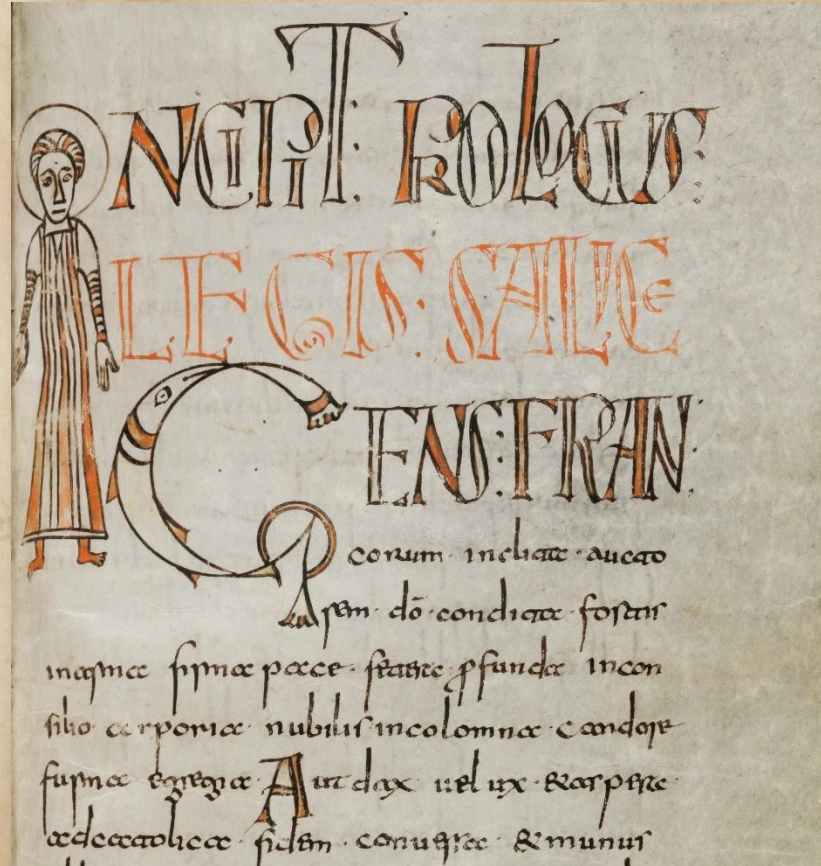 INCIPIT : PROLOGUS :
LEGIS : SALICE
GENS : FRAN :
corum · inclita · aucto
rem · dō · condita · fortis
in arma firma pace · fetere p̄funda incon
silio corporia · nubilis incolomna candore
furma egregia · Audax uelux · & aspere
adcatolica fidem · conuersa · & munus